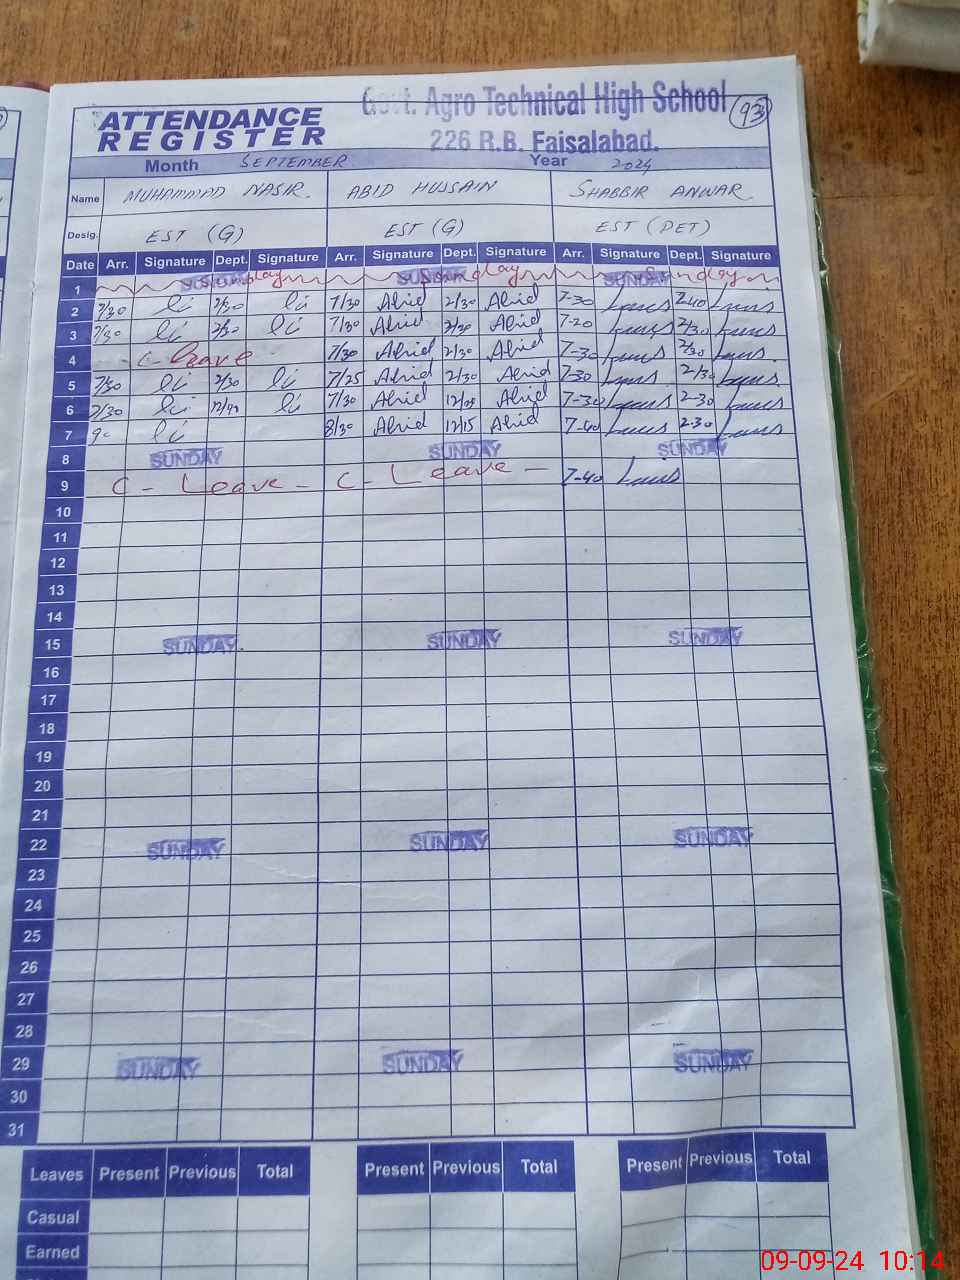 Govt. Agro Technical High School
226 R.B. Faisalabad.
93
ATTENDANCE
REGISTER
Month SEPTEMBER Year 2024
Name MUHAMMAD NASIR. ABID HUSSAIN SHABBIR ANWAR.
Desig. EST (G) EST (G) EST (PET)
Date Arr. Signature Dept. Signature Arr. Signature Dept. Signature Arr. Signature Dept. Signature
1 SUNDAY Sunday SUNDAY Sunday SUNDAY Sunday
2 7/30 2/30 7/30 Abid 2/30 Abid 7-30 2-40
3 7/30 2/30 7/30 Abid 2/30 Abid 7-20 2/30
4 C-Leave 7/30 Abid 2/30 Abid 7-30 2/30
5 7/30 2/30 7/25 Abid 2/30 Abid 7-30 2/30
6 7/30 7/30 Abid Abid 7-30 2-30
7 8/30 Abid 12/15 Abid 7-40 2-30
8 SUNDAY SUNDAY SUNDAY
9 C-Leave- C-Leave- 7-40
10
11
12
13
14
15 SUNDAY. SUNDAY SUNDAY
16
17
18
19
20
21
22 SUNDAY SUNDAY SUNDAY
23
24
25
26
27
28
29 SUNDAY SUNDAY SUNDAY
30
31
Leaves Present Previous Total Present Previous Total Present Previous Total
Casual
Earned
09-09-24 10:14